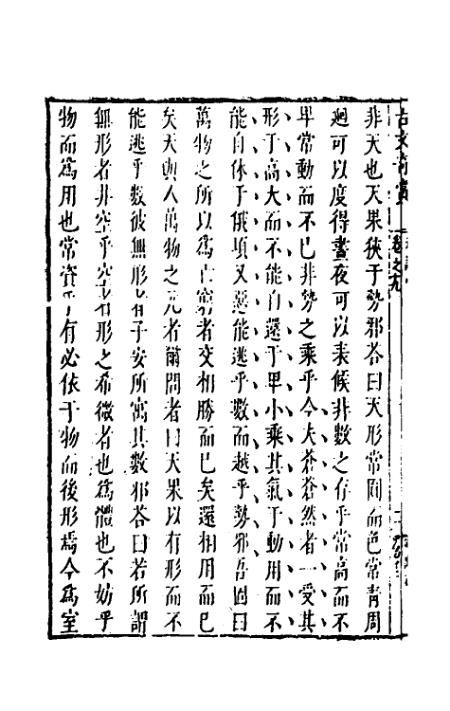 非天也天果狹于勢邪荅曰天形常圓而色常青周
廻可以度得晝夜可以表候非數之存乎常高而不
卑常動而不已非勢之乘乎今夫蒼蒼然者一受其
形于高大而不能自還于卑小乘其氣于動用而不
能自休于俄頃又惡能逃乎數而越乎勢邪吾固曰
萬物之所以爲亡窮者交相勝而已矣還相用而已
矣天與人萬物之尤者爾問者曰天果以有形而不
能逃乎數彼無形者子安所寓其數邪荅曰若所謂
無形者非空乎空者形之希微者也爲體也不妨乎
物而爲用也常資乎有必依于物而後形焉今爲室